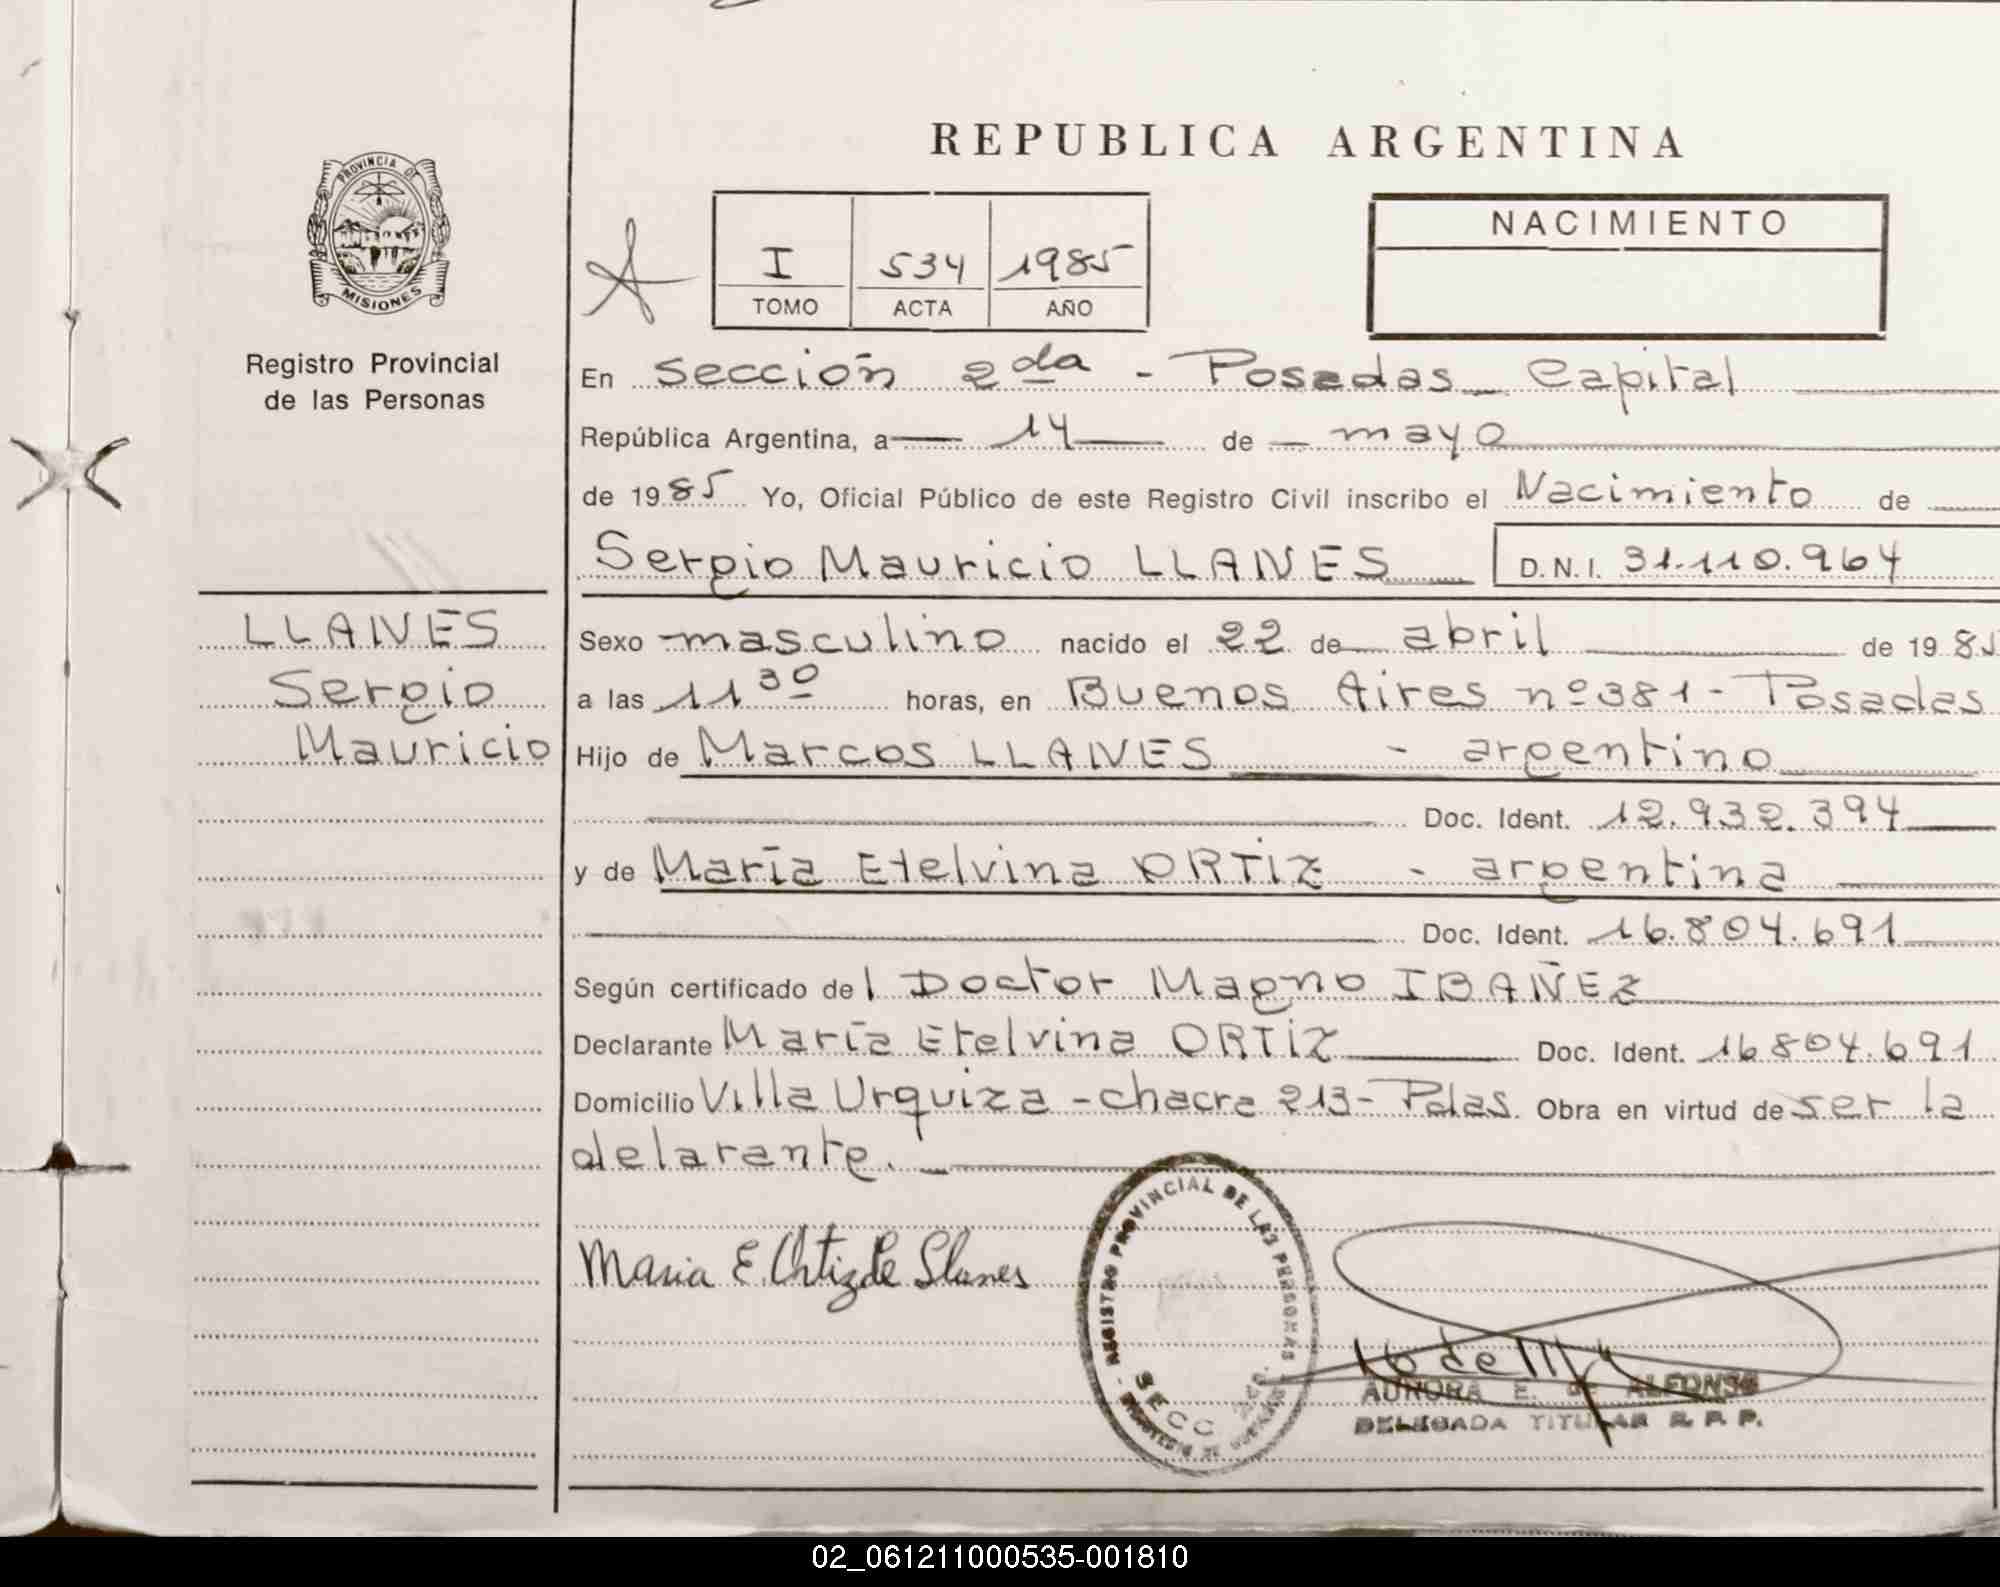 REPUBLICA ARGENTINA
PROVINCIA DE
MISIONES
Registro Provincial
de las Personas
I 534 1985
TOMO ACTA AÑO
NACIMIENTO
En Sección 2da - Posadas Capital
República Argentina, a 14 de mayo
de 1985 Yo, Oficial Público de este Registro Civil inscribo el Nacimiento de
Sergio Mauricio LLANES D.N.I. 31.110.964
LLANES
Sergio
Mauricio
Sexo masculino nacido el 22 de abril de 1985
a las 11 30 horas, en Buenos Aires nº 381 - Posadas
Hijo de Marcos LLANES - argentino
Doc. Ident. 12.932.394
y de María Etelvina ORTIZ - argentina
Doc. Ident. 16.804.691
Según certificado del Doctor Magno IBAÑEZ
Declarante María Etelvina ORTIZ Doc. Ident. 16804.691
Domicilio Villa Urquiza - chacra 213 - Pdas. Obra en virtud de ser la
delarante.
Maria E. Ortiz de Llanes
REGISTRO PROVINCIAL DE LAS PERSONAS
SECC
AURORA E. DE ALFONSO
DELEGADA TITULAR R. P. P.
02_061211000535-001810